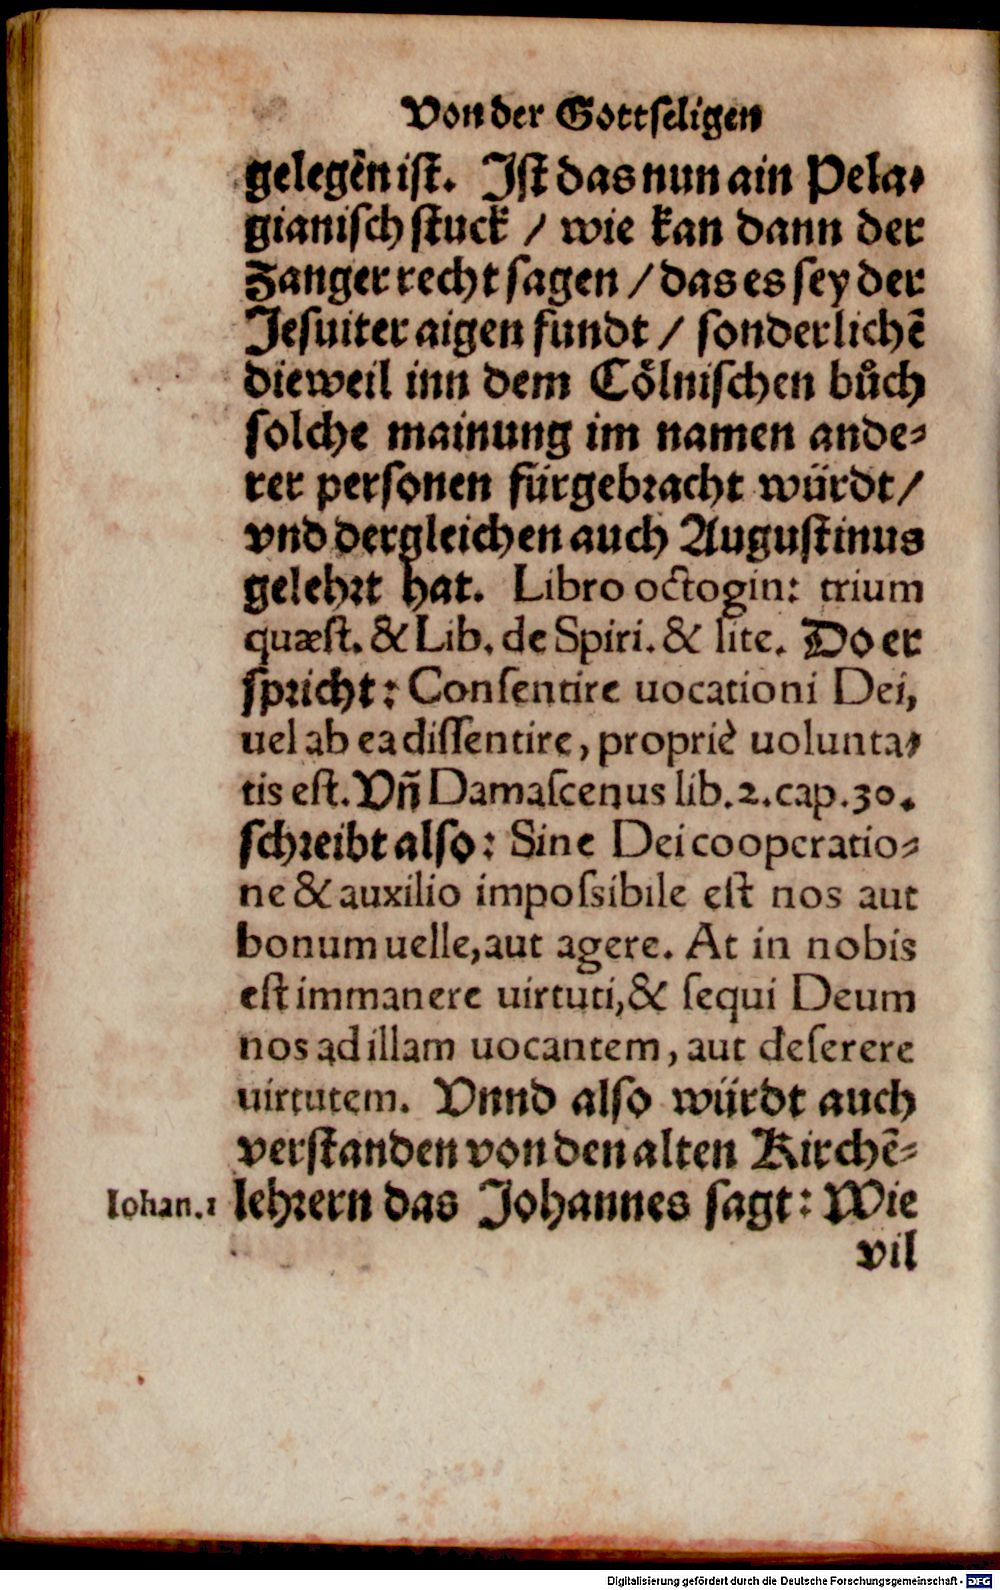 Von der Gottseligen
gelegẽ n ist. Ist das nun ain Pela-
gianisch stuck / wie kan dann der
Zanger recht sagen / das es sey der
Jesuiter aigen fundt / sonderlichẽ
dieweil inn dem Cölnischen bůch
solche mainung im namen ande-
rer personen fürgebracht würdt /
vnd dergleichen auch Augustinus
gelehrt hat. Libro octogin: trium
quæst. & Lib. de Spiri. & lite. Do er
spricht: Consentire uocationi Dei,
uel ab ea dissentire, propriè uolunta-
tis est. Vñ Damascenus lib. 2. cap. 30.
schreibt also: Sine Dei cooperatio-
ne & auxilio impossibile est nos aut
bonum uelle, aut agere. At in nobis
est immanere uirtuti, & sequi Deum
nos ad illam uocantem, aut deserere
uirtutem. Vnnd also würdt auch
verstanden von den alten Kirchẽ-
Iohan. 1 lehrern das Johannes sagt: Wie
vil
Digitalisierung gefördert durch die Deutsche Forschungsgemeinschaft - DFG